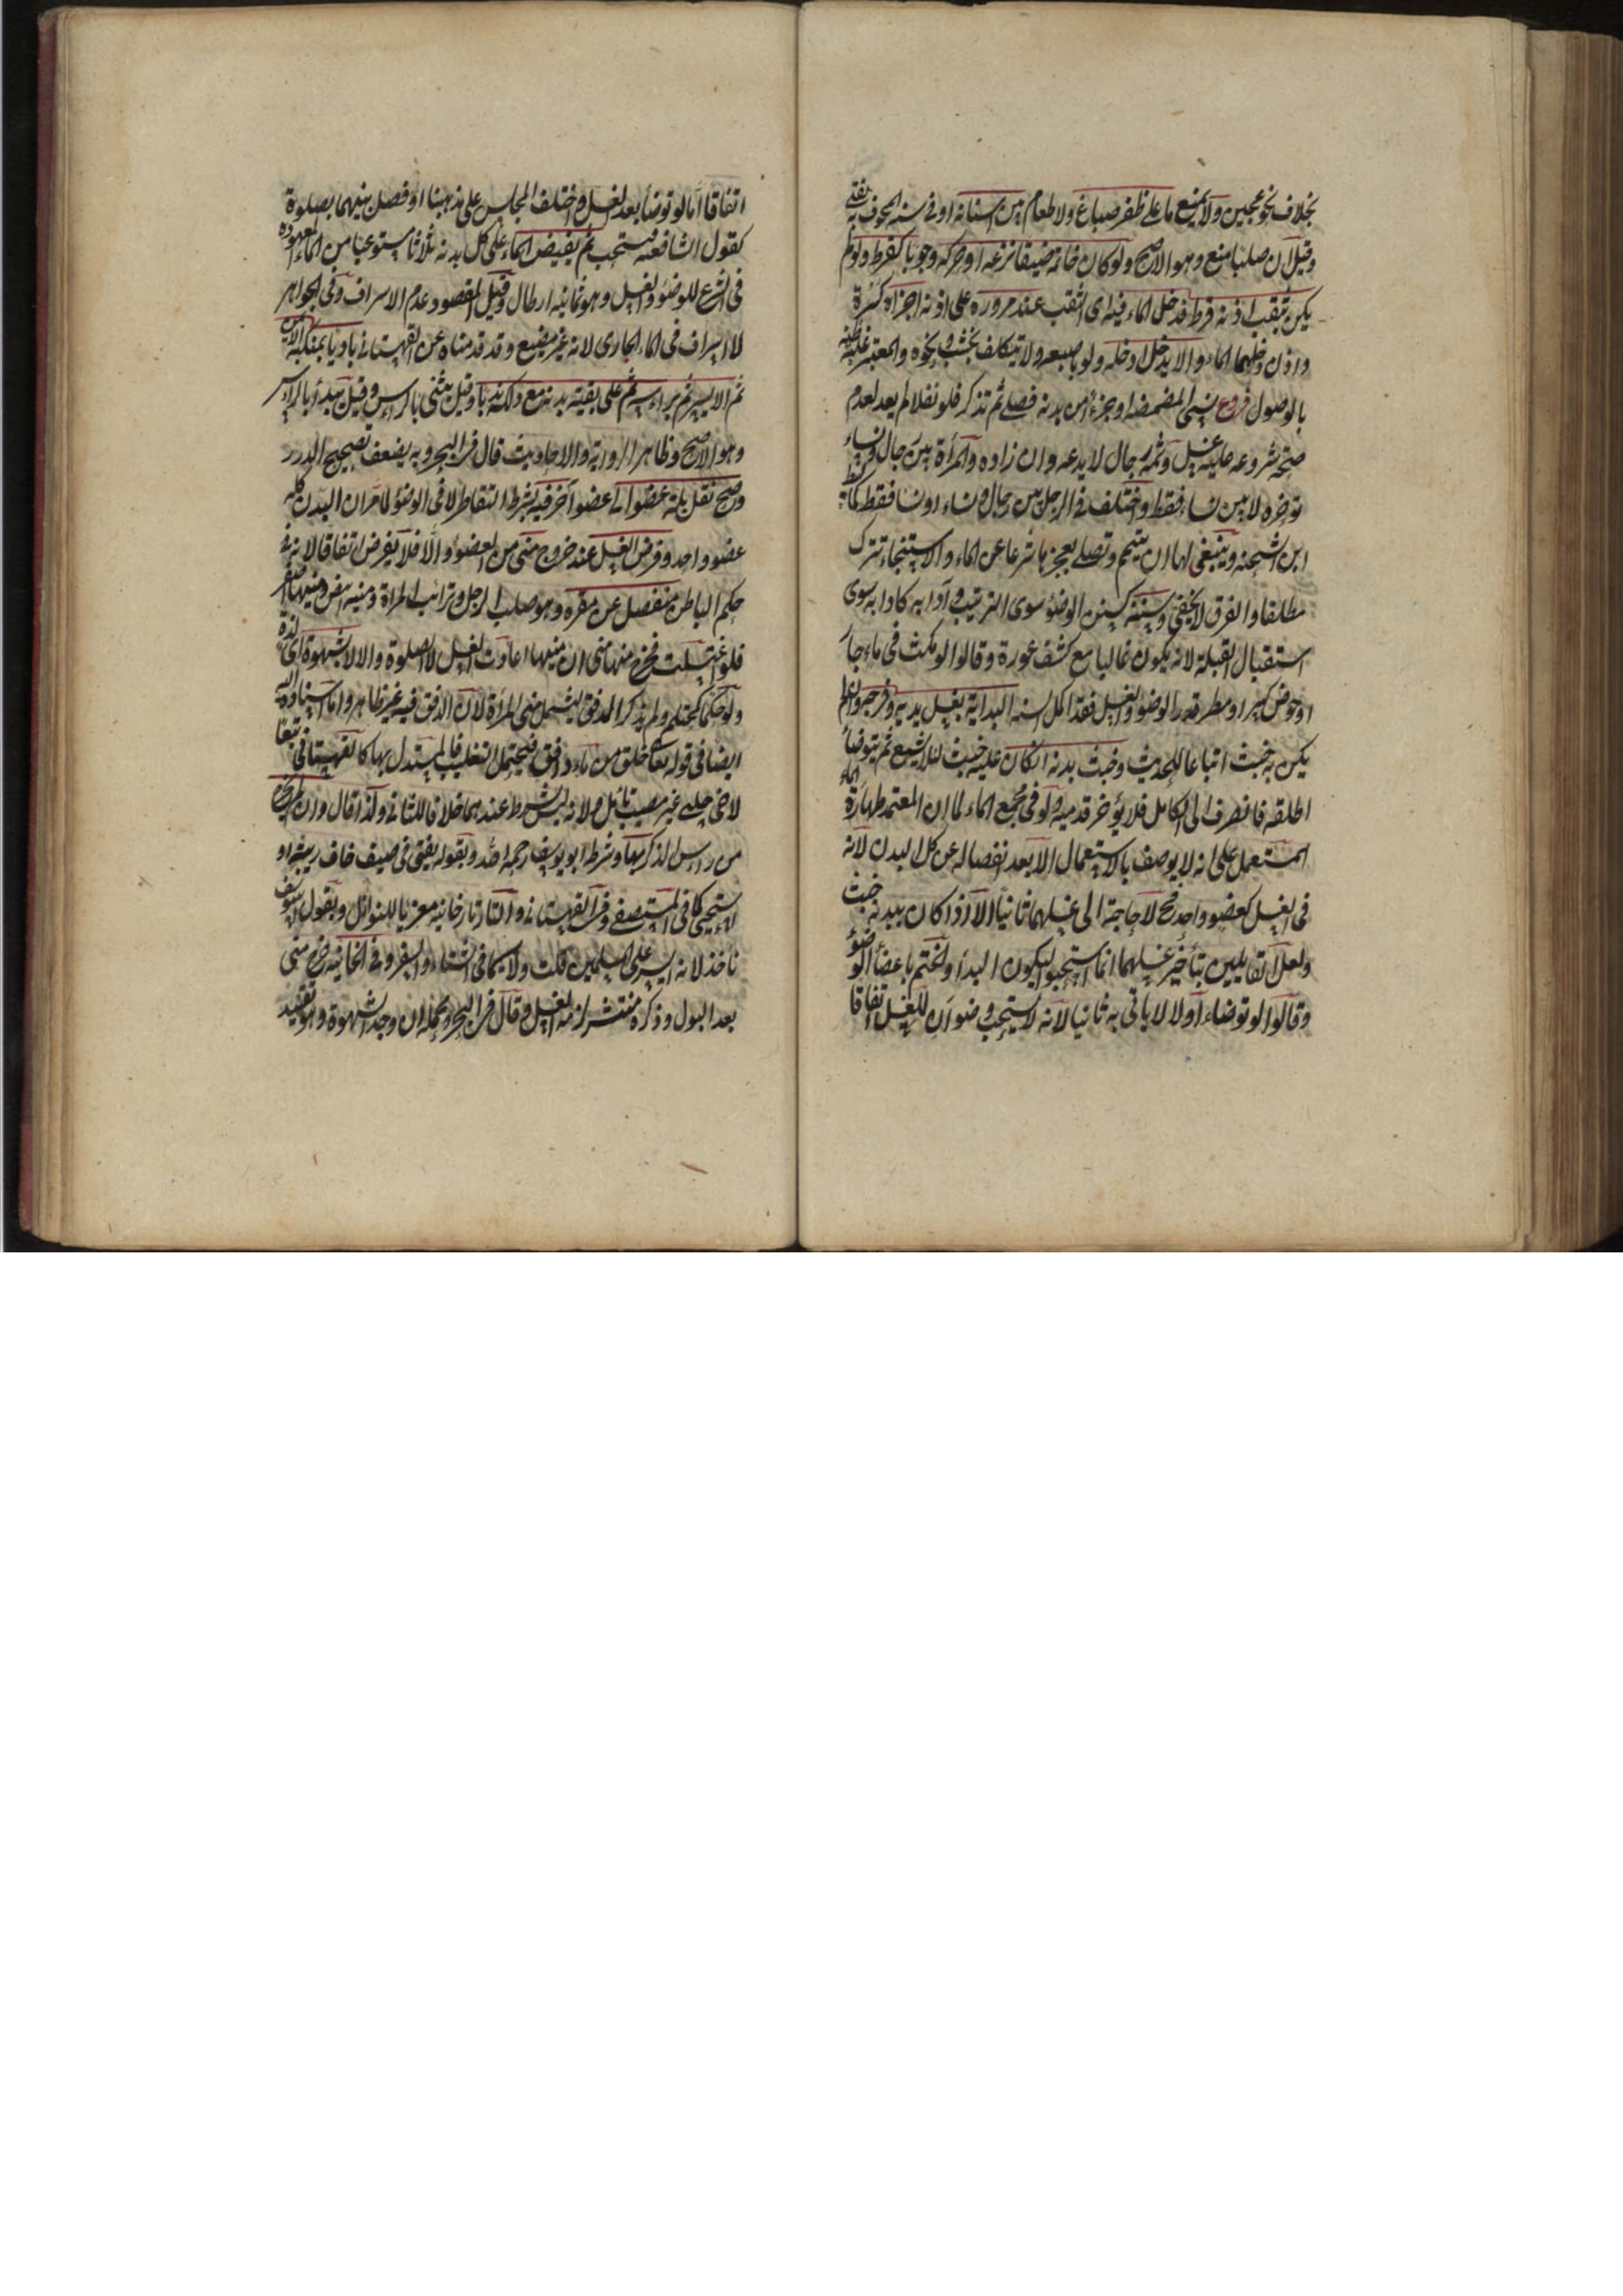 بخلاف نحو عجين ولا يمنع ما على ظفر صباغ ولا طعام بين اسنانه او في سنه المجوف به يفتى
وقيل ان صلبا منع وهو الاصح ولو كان خاتمه ضيقا نزعه او حركه وجوبا كقرط ولو لم
يكن بثقب اذنه قرط فدخل الماء فيه اى الثقب عند مروره على اذنه اجزاه كسرة
واذن دخلهما الماء والا يدخل ادخله ولو باصبعه ولا يتكلف بخشب ونحوه والمعتبر غلبة ظنه
بالوصول فروع نسى المضمضة او جزءا من بدنه فصلى ثم تذكر فلو نفلا لم يعد لعدم
صحة شروعه عليه غسل وثمه رجال لا يدعه وان راوه والمرأة بين رجال ونساء
تؤخره لا بين نساء فقط واختلف في الرجل بين رجال ونساء او نساء فقط كما بسطه
ابن الشحنه وينبغى لها ان تتيمم وتصلى لعجزها شرعا عن الماء والاستنجاء تترك
مطلقا والفرق لا يخفى وسننه كسنن الوضوء سوى الترتيب وآدابه كادابه سوى
استقبال القبلة لانه يكون غالبا مع كشف عورة وقالوا لو مكث في ماء جار
او حوض كبير او مطر قدر الوضوء والغسل فقد اكمل السنه البداية بغسل يديه وفرجه وان لم
يكن به خبث اتباعا للحديث وخبث بدنه ان كان عليه خبث لئلا يشيع ثم يتوضأ
اطلقه فانصرف الى الكامل فلا يؤخر قدميه ولو في مجمع الماء لما ان المعتمد طهارة الماء
المستعمل على انه لا يوصف بالاستعمال الا بعد انفصاله عن كل البدن لانه
في الغسل كعضو واحد فح لا حاجة الى غسلهما ثانيا الا اذا كان ببدنه خبث
ولعل القايلين بتأخير غسلهما انما استحبوا ليكون البدأ والختم باعضاء الوضوء
وقالوا لو توضاء اولا لا ياتى به ثانيا لانه لا يستحب وضوآن للغسل اتفاقا
اتفاقا اما لو توضأ بعد الغسل واختلف المجلس على مذهبنا او فصل بينهما بصلوة
كقول الشافعيه فيستحب ثم يفيض الماء على كل بدنه ثلاثا مستوعبا من الماء المعهود
في الشرع للوضوء والغسل وهو ثمانيه ارطال وقيل المقصود عدم الاسراف وفي الجواهر
لا اسراف في الماء الجارى لانه غير مضيع وقد قدمناه عن القهستانى باديا بمنكبه الايمن
ثم الايسر ثم براسه ثم على بقية بدنه مع دلكه ندبا وقيل يثنى بالراس وقيل يبدأ بالراس
وهو الاصح وظاهر الروايه والاحاديث قال في البحر وبه يضعف تصحيح الدرر
وصح نقل بلة عضو الى عضو آخر فيه بشرط التقاطر لا في الوضوء لما مر ان البدن كله
عضو واحد وفرض الغسل عند خروج منى من العضو والا فلا يفرض اتفاقا لانه في
حكم الباطن منفصل عن مقره وهو صلب الرجل وترائب المراة ومنيه ابيض ومنيها اصفر
فلو اغتسلت فخرج منها منى ان منيها اعادت الغسل لا الصلوة والا لا بشهوة اى لذة
ولو حكما كمحتلم ولم يذكر الدفق ليشمل منى المرأة لان الدفق فيه غير ظاهر واما اسناده اليه
ايضا في قوله تعا خلق من ماء دافق فيحتمل التغليب فالمستدل بها كالقهستانى تبعا
لاخى چلبى غير مصيب تامل ولانه ليس بشرط عندهما خلافا للثانى ولذا قال وان لم يخرج
من راس الذكر بها وشرط ابو يوسف رحمه الله وبقوله يفتى في ضيف خاف ريبة او
استحيى كما في المستصفى وفي القهستانى والتاتارخانيه معزيا للنوازل وبقول ابى يوسف
نأخذ لانه ايسر على المسلمين قلت ولا سيما في الشتاء والسفر وفي الخانيه خرج منى
بعد البول وذكره منتشر لزمه الغسل وقال في البحر ومحمله ان وجد الشهوة وهو تقييد